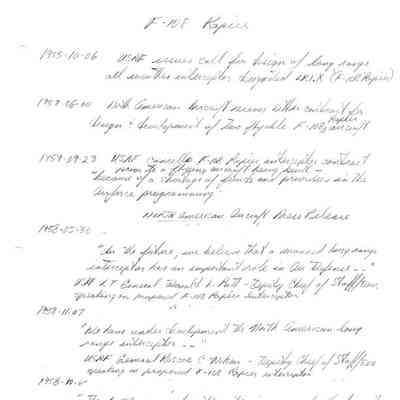 F-108 Rapier
1955-10-06 USAF issues call for design of long range
all weather interceptor designated LRIX (F-108 Rapier)
1957-06-00 North American Aircraft receives letter contract for
design & development of two flyable F-108 Rapier aircraft
1959-09-23 USAF cancels F-108 Rapier interceptor contract
prior to a flying aircraft being built -
because of a shortage of funds and priorities in the
Airforce programming"
North American Aircraft Press Release
1958-05-30
"In the future, we believe that a manned long range
interceptor has an important role in Air Defense - -"
USAF LT General Donald L. Putt - Deputy Chief of Staff/
speaking on proposed F-108 Rapier Interceptor
1958-11-07
"We have under development the North American long
range interceptor - - -"
USAF General Roscoe C Wilson - Deputy Chief of Staff/
speaking on proposed F-108 Rapier interceptor
1958-10-